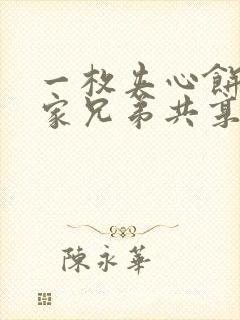 一枚夹心餅
家兄弟共
陳永華